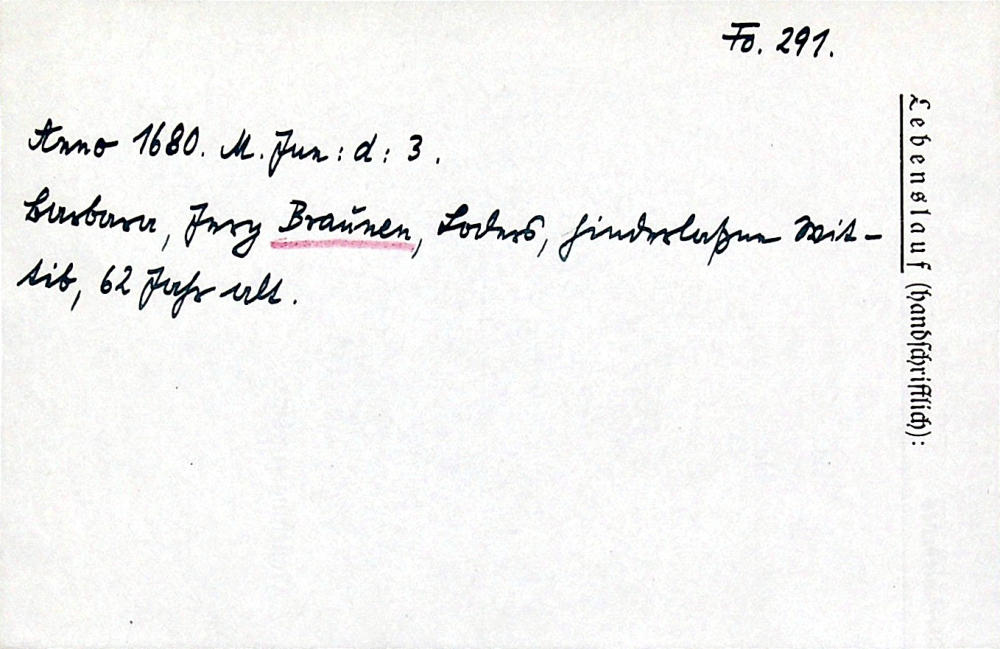 Fo. 291.
Anno 1680. M. Jun: d: 3.
Barbara, Jerg Braunen, Loders, hinderlaßne Wit-
tib, 62 Jahr alt.
Lebenslauf (handschriftlich):